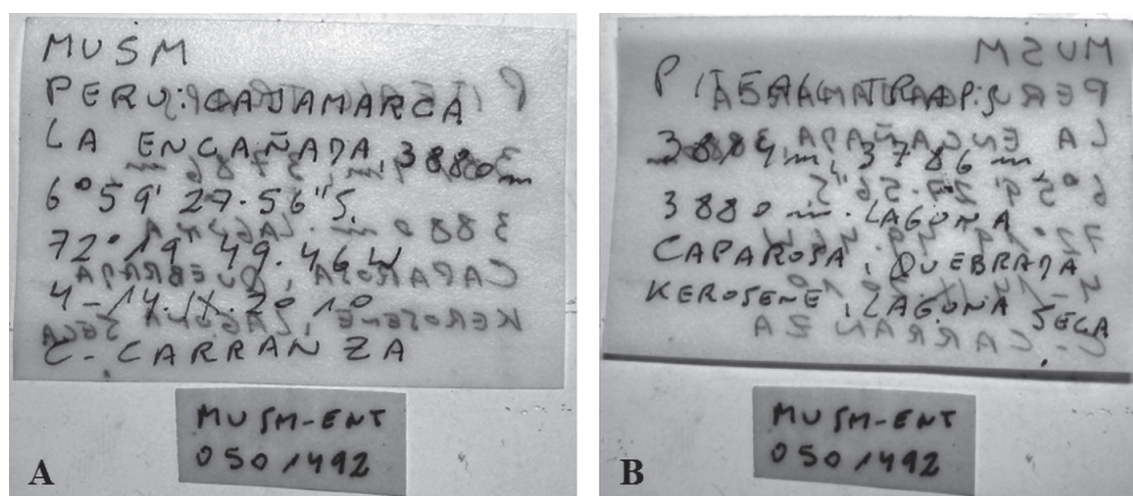 MUSM
PERU: CAJAMARCA
LA ENCAÑADA, 3880 m
6°59'27.56"S,
72°19"49.46W
4-14.IX.2010
C. CARRANZA
MUSM-ENT
0501492
A
PITFALL TRAPS
3884 m, 3786 m,
3880 m. LAGUNA
CAPAROSA, QUEBRADA
KEROSENE, LAGUNA SECA
MUSM-ENT
0501492
B